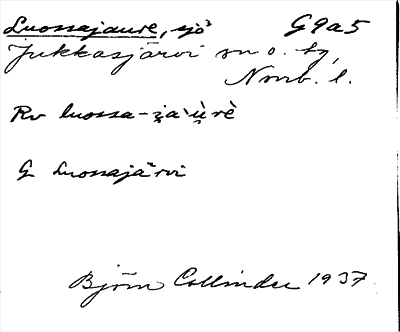 Luossajaure, sjö G9a5
Jukkasjärvi sn o. tg,
Nrrb. l.
Rv luossa-i̯a`ù̯rè
G Luossajärvi
Björn Collinder 1937